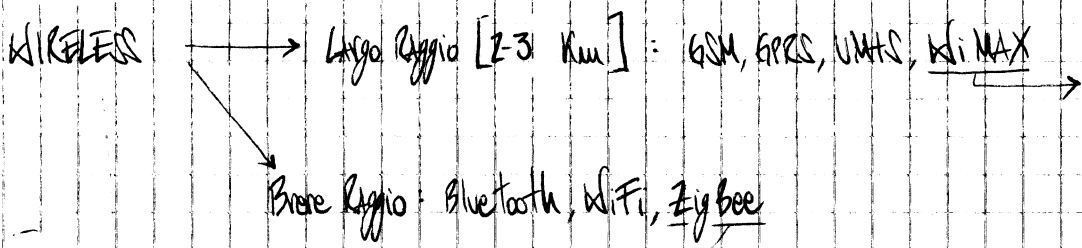 WIRELESS → Largo Raggio [2-3 Km] : GSM, GPRS, UMTS, WiMAX →
Breve Raggio : Bluetooth, WiFi, ZigBee